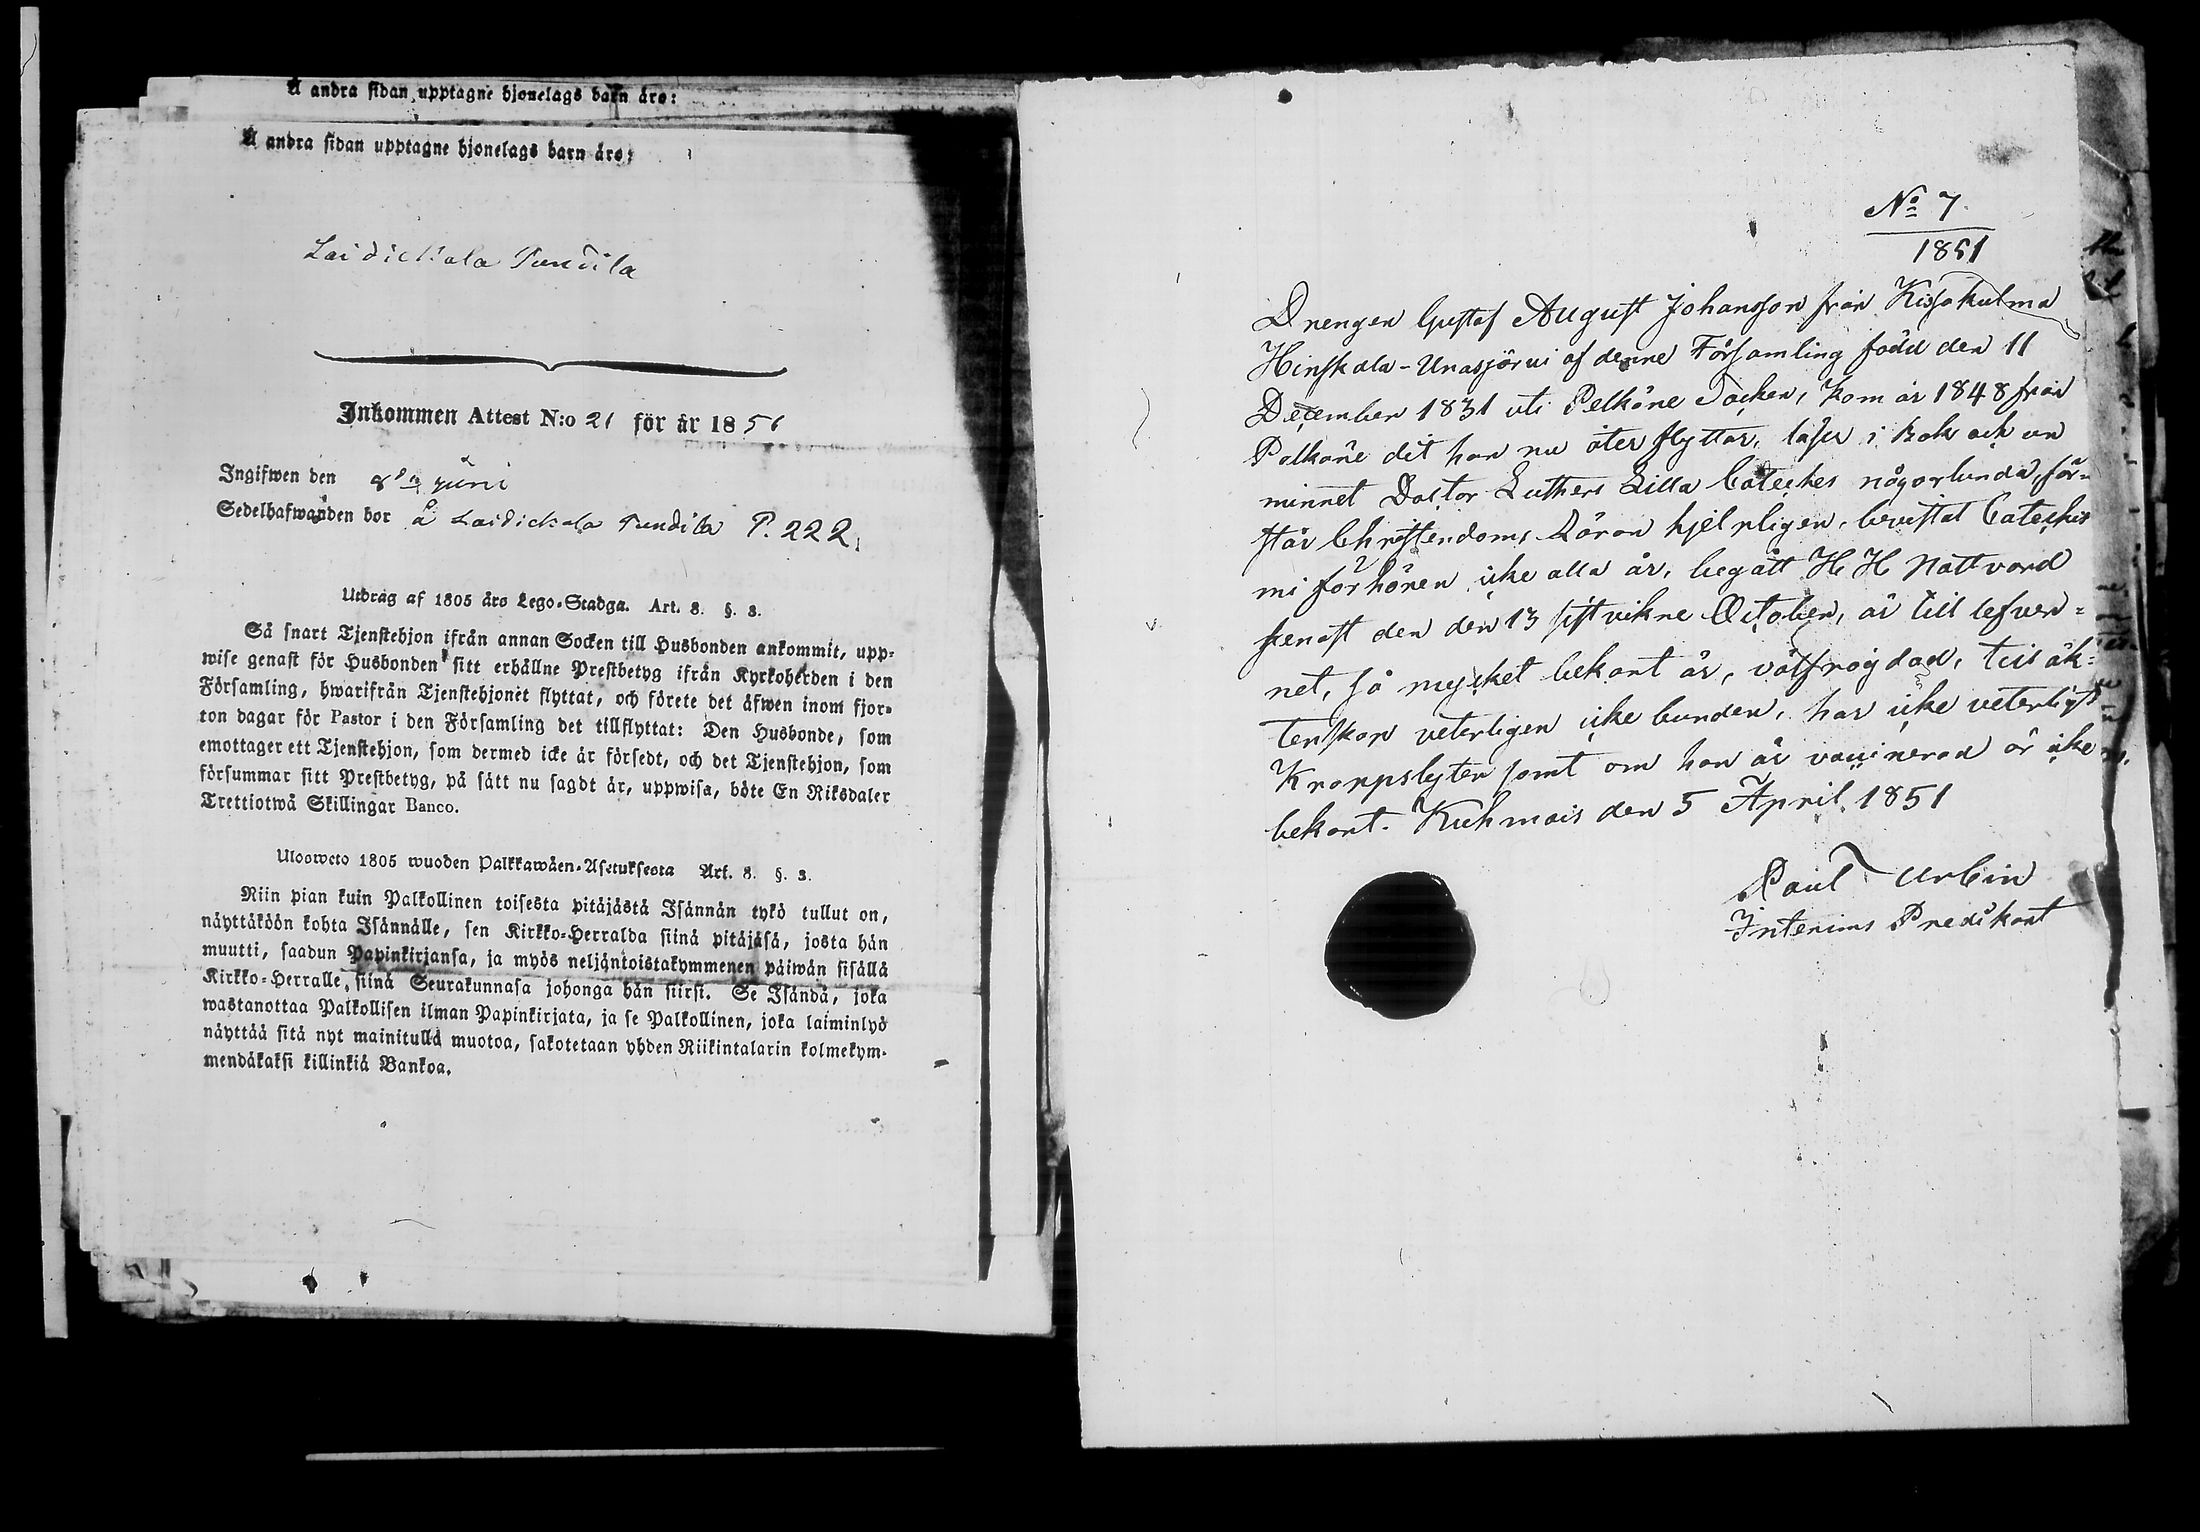 Å andra sidan upptagne hjonelags barn äro:
Å andra sidan upptagne hjonelags barn äro:
Laidickala Tundila
Inkommen Attest N:o 21 för år 1851
Ingifwen den 8de Juni
Sedelhafwanden bor å Laidickala Tundila P. 222.
Utdrag af 1805 års Lego-Stadga. Art. 8. §. 3.
Så snart Tjenstehjon ifrån annan Socken till Husbonden ankommit, upp-
wise genast för Husbonden sitt erhållne Prestbetyg ifrån Kyrkoherden i den
Församling, hwarifrån Tjenstehjonet flyttat, och förete det äfwen inom fjor-
ton dagar för Pastor i den Församling det tillflyttat: Den Husbonde, som
emottager ett Tjenstehjon, som dermed icke är försedt, och det Tjenstehjon, som
försummar sitt Prestbetyg, på sätt nu sagdt är, uppwisa, böte En Riksdaler
Trettiotwå Skillingar Banco.
Ulosweto 1805 wuoden Palkkawäen-Asetuksesta Art. 8. §. 3.
Niin pian kuin Palkollinen toisesta pitäjästä Isännän tykö tullut on,
näyttäköön kohta Isännälle, sen Kirkko-Herralda siinä pitäjäsä, josta hän
muutti, saadun Papinkirjansa, ja myös neljäntoistakymmenen päiwän sisällä
Kirkko-Herralle, siinä Seurakunnasa johonga hän siirsi. Se Isändä, joka
wastanottaa Palkollisen ilman Papinkirjata, ja se Palkollinen, joka laiminlyö
näyttää sitä nyt mainitulla muotoa, sakotetaan yhden Riikintalarin kolmekym-
mendäkaksi killinkiä Bankoa.
No 7
1851
Drengen Gustaf August Johansson från Kissakulma
Hinskala-Unasjörvi af denne Församling född den 11
December 1831 uti Pelkäne Socken, kom år 1848 från
Pelkäne dit han nu åter flyttar, läser i Bok och un
minnet Doctor Luthers Lilla Cateches någorlunda, för-
står Christendoms Läran hjelpligen, bevistat Cateches
mi förhören icke alla år, begått H H Nattvard
senast den den 13 sistvikne October, är till lefver=
net, så mycket bekant är, välfrägdad, till äk=
tenskap veterligen icke bunden, har icke veterligt
Kroppslyten samt om han är vaccinerad är icke
bekant. Kuhmois den 5 April 1851
Paul Urbin
Interims Predikant